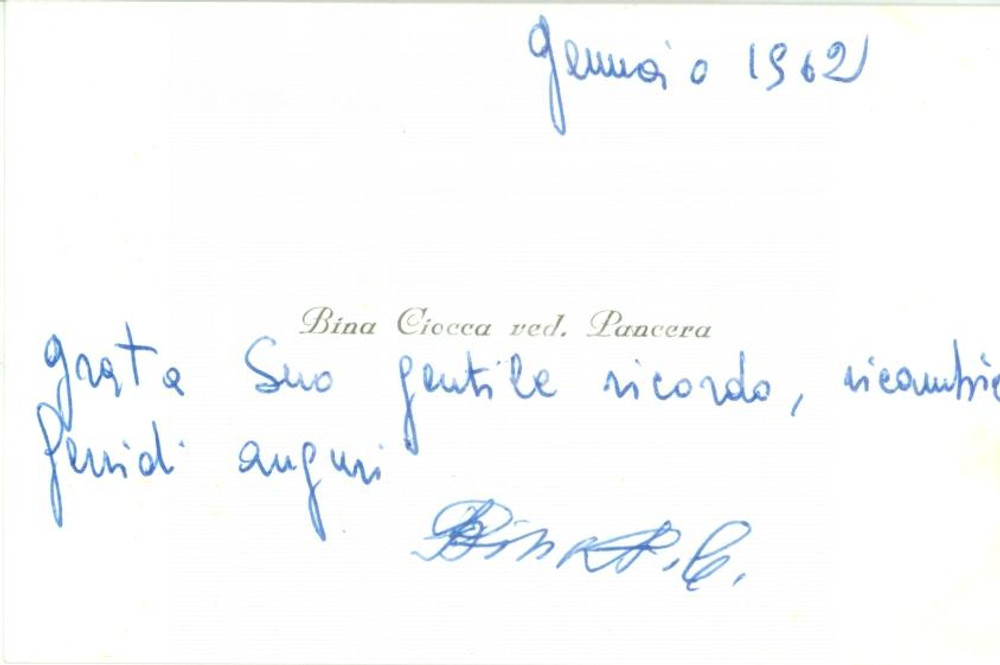 Gennaio 1962
Bina Ciocca ved. Pancera
grata Suo gentile ricordo, ricambio
fervidi auguri
Bina P. C.